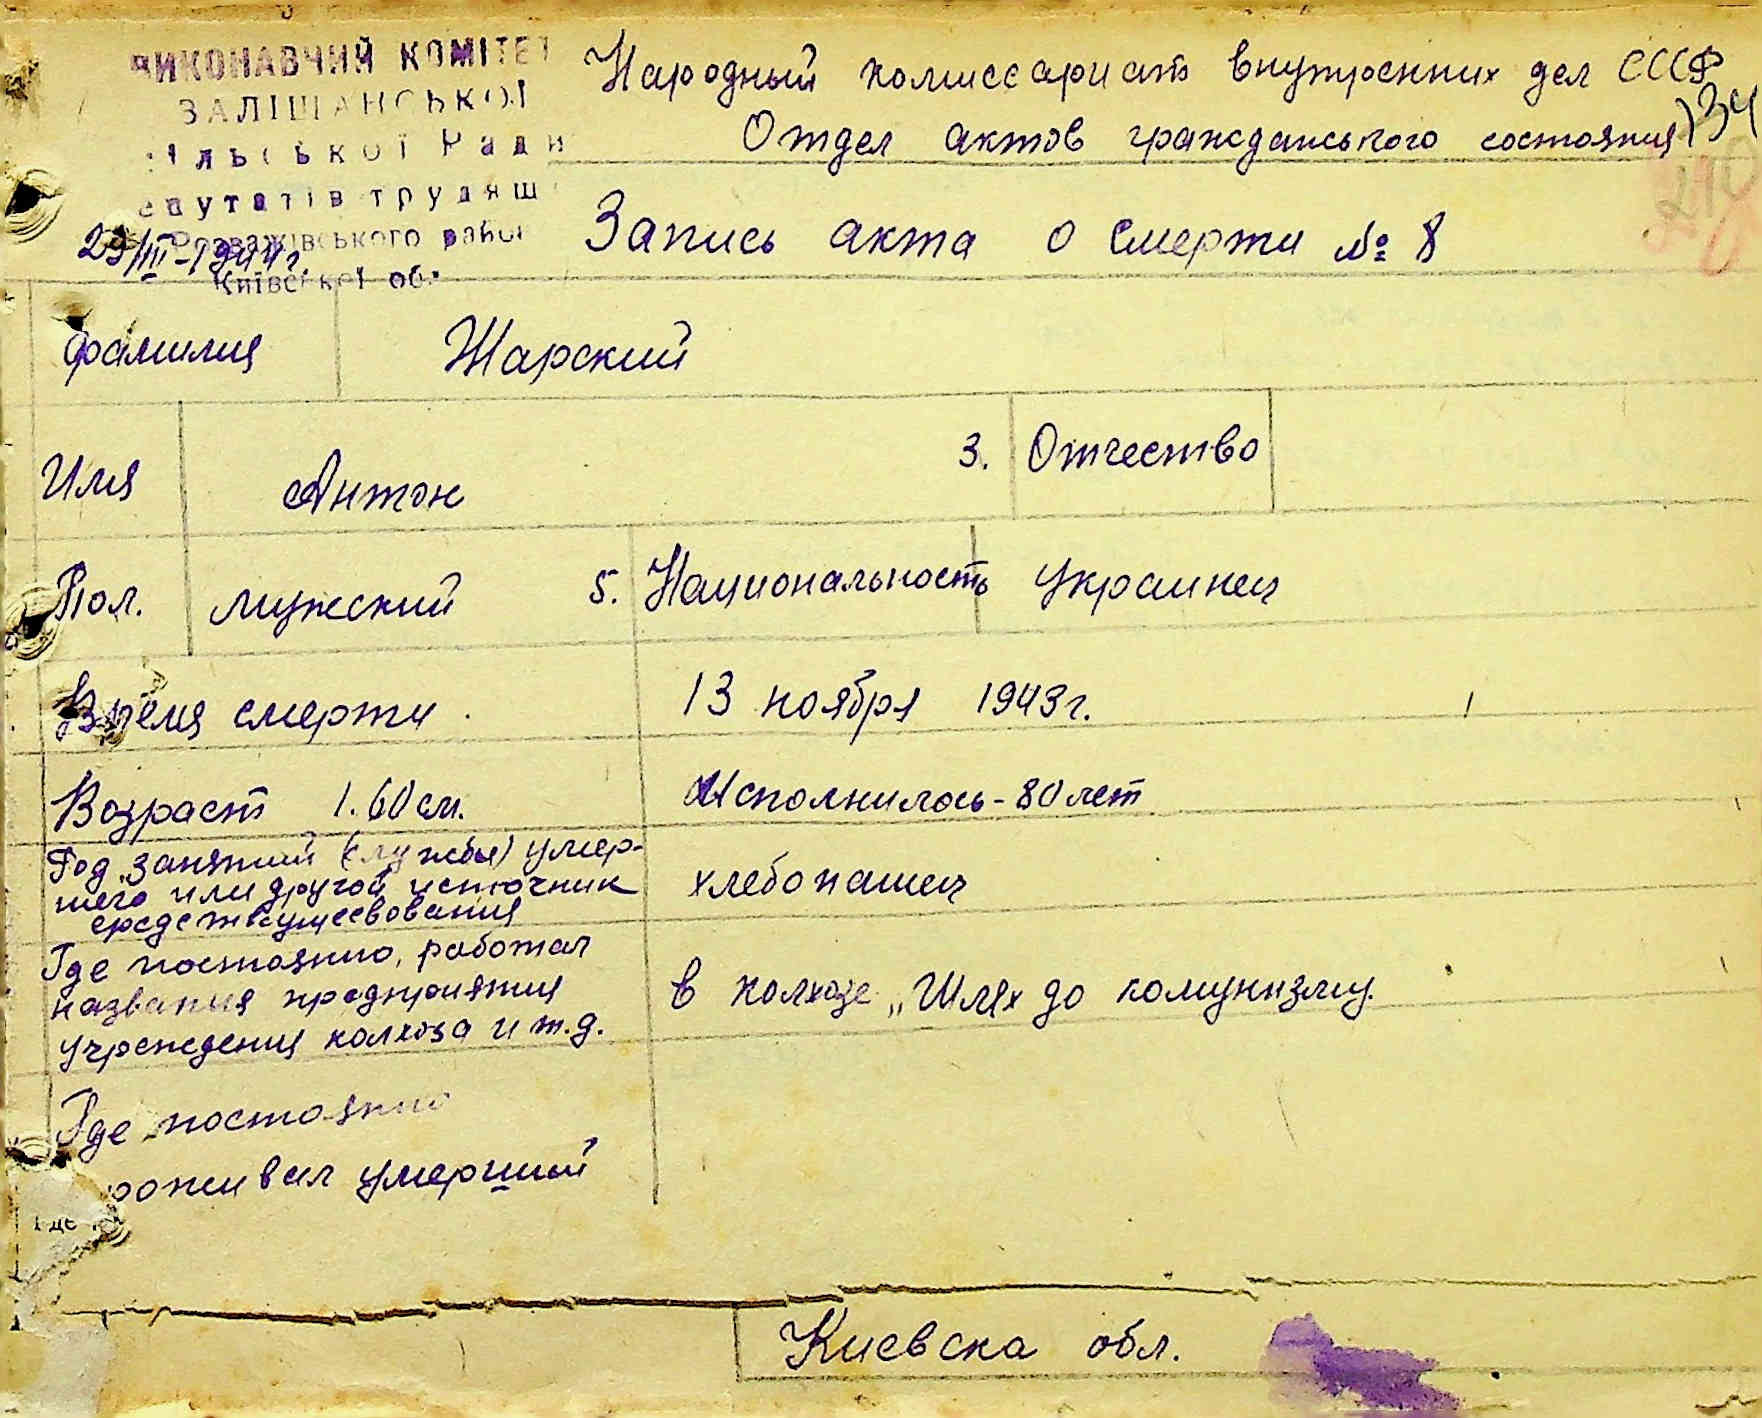 ВИКОНАВЧИЙ КОМІТЕТ
ЗАЛІШАНСЬКОЇ
ільської Ради
епутатів трудящ
Розважівського райо
Київської обл
29/III-1944 г
Народный комиссариать внутренних дел СССР
134
Отдел актов гражданського состояния
Запись акта о смерти № 8
Фамилия Жарский
Имя Антон 3. Отчество
Пол. мужеский 5. Национальность Украинец
Время смерти. 13 ноября 1943 г.
Возраст 1.60 см. Исполнилось - 80 лет
Род занятий (службы) умер-
шего или другой источник
средств существования
хлебопашец
Где постоянно, работал
названия предприятия
учреждения колхоза и т.д.
в колхозе „Шлях до комунизму.
Где постоянно
роживал умерший
Где
Киевска обл.